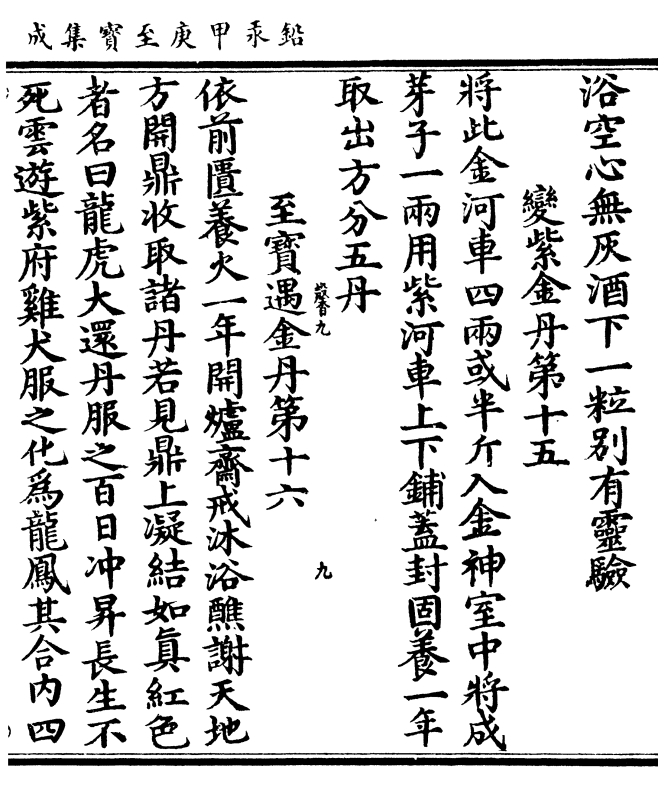 鉛汞甲庚至寶集成
浴空心無灰酒下一粒别有靈驗
變紫金丹第十五
將此金河車四兩或半斤入金神室中將成
芽子一兩用紫河車上下鋪蓋封固養一年
取出方分五丹
九
九
至寶遇金丹第十六
依前匱養火一年開爐齋戒沐浴醮謝天地
方開鼎收取諸丹若見鼎上凝結如眞紅色
者名曰龍虎大還丹服之百日冲昇長生不
死雲遊紫府雞犬服之化爲龍鳳其合内四